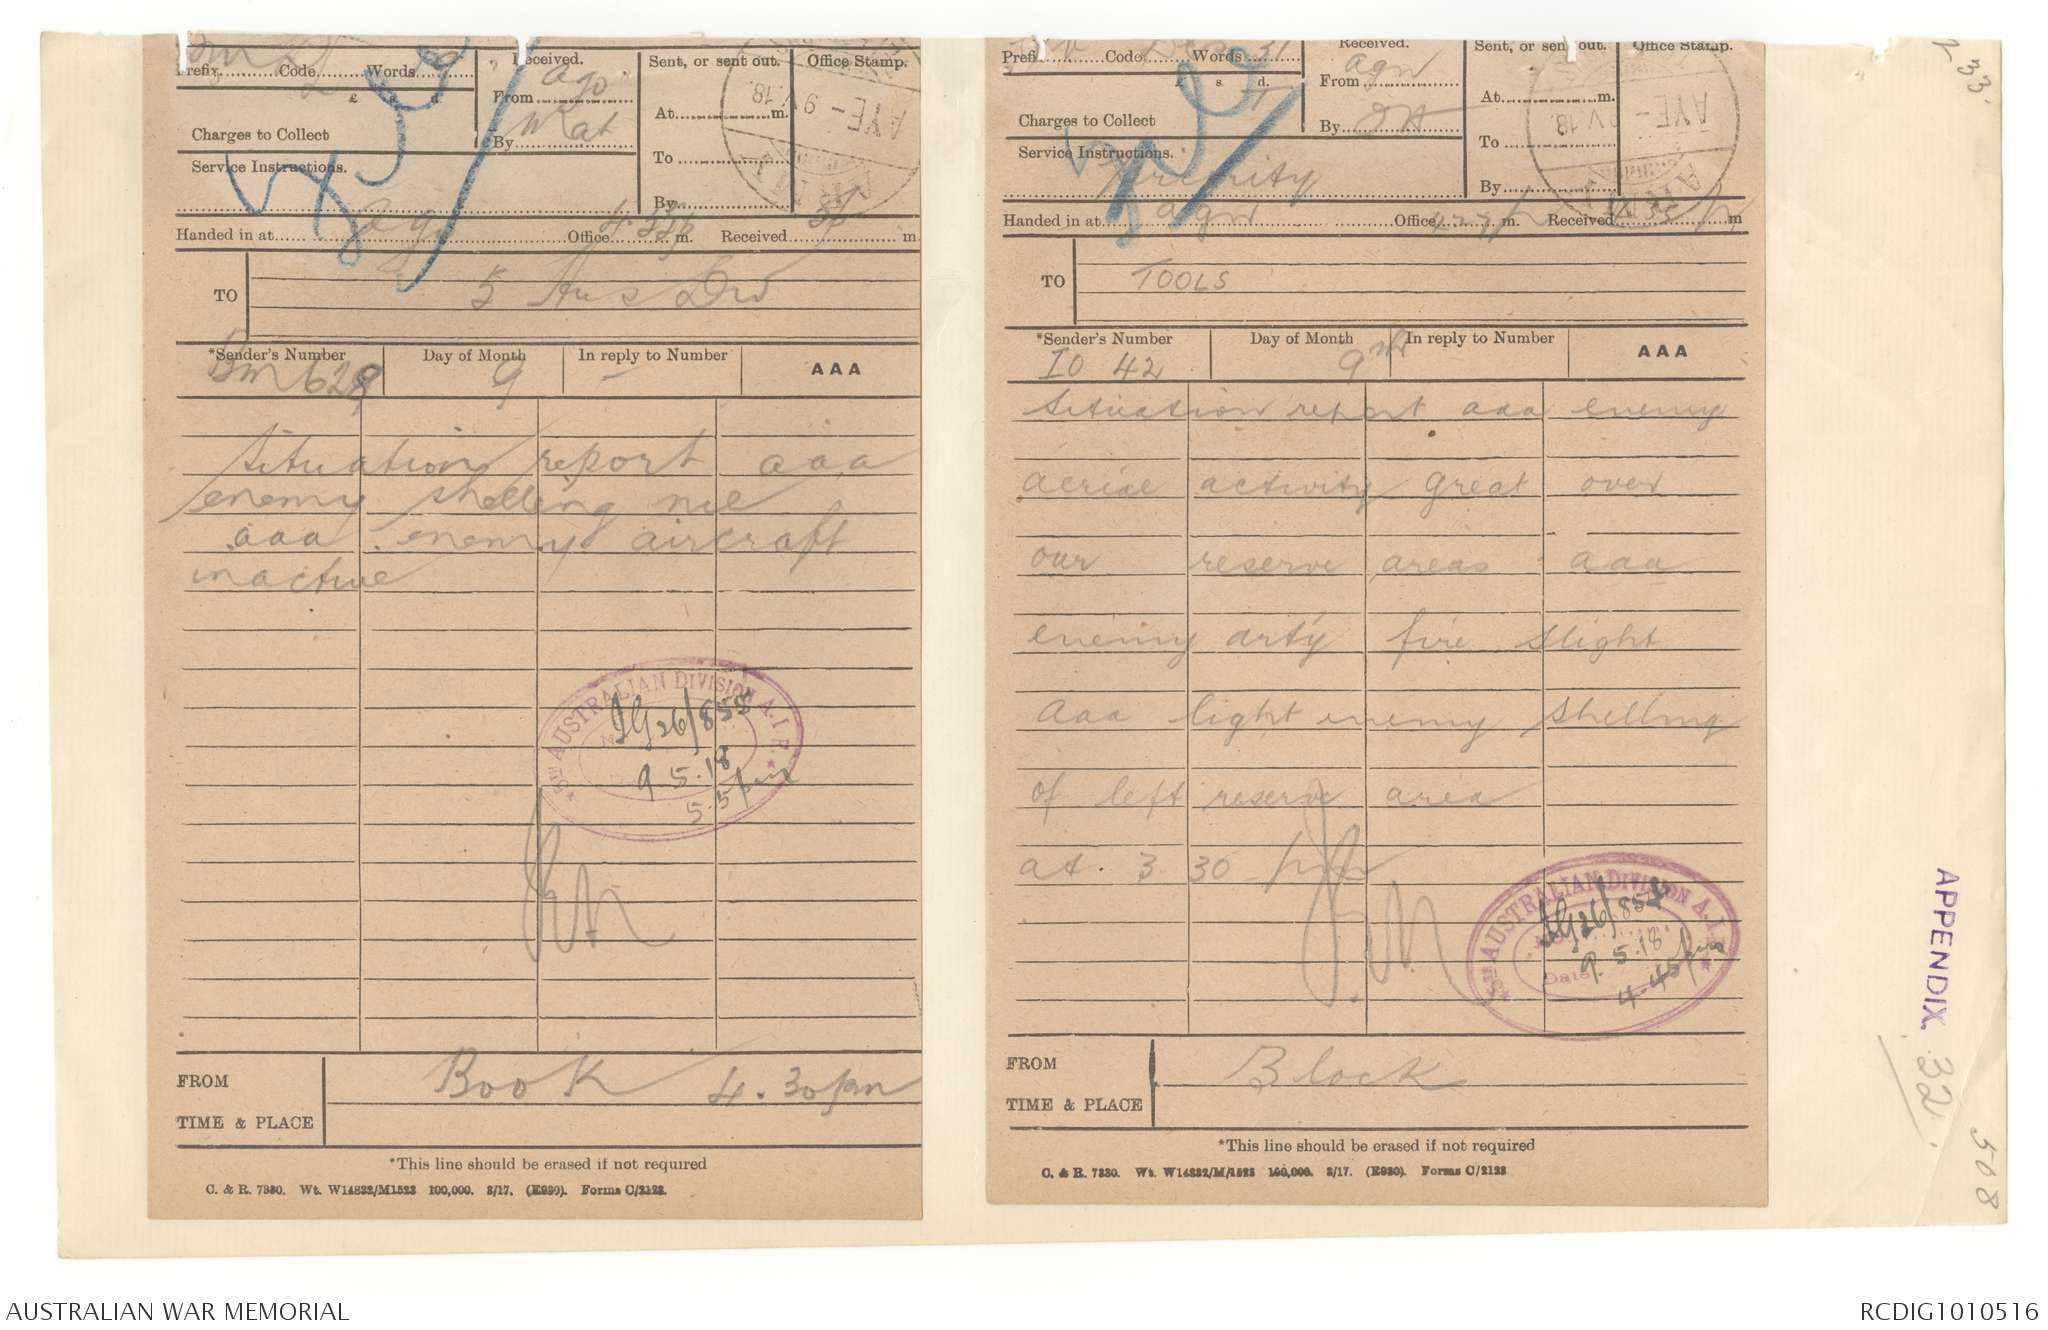 Prefix Code Words
£ s. d.
Charges to Collect
Service Instructions.
Received.
From
By
Sent, or sent out.
At m.
To
By
Office Stamp.
AYE - 9 V.18.
ARMY
Handed in at Office 4.33p m. Received m.
TO 5 Aus Div
*Sender's Number Day of Month In reply to Number AAA
Bm 628 9 -
Situation report aaa
enemy shelling nil
aaa enemy aircraft
inactive
5TH AUSTRALIAN DIVISION A.I.F.
IG 26/858
9.5.18
5.5 pm
FROM Book 4.30 pm
TIME & PLACE
*This line should be erased if not required
C. & R. 7380. Wt. W14832/M1523 100,000. 3/17. (E930). Forms C/2123.
Prefix Code Words 31
£ s d.
Charges to Collect
Service Instructions.
Priority
Received.
From agw
By
Sent, or sent out.
At m.
To
By
Office Stamp.
AYE - 9 V.18.
ARMY
Handed in at agw Office m. Received m
TO TOOLS
*Sender's Number Day of Month In reply to Number AAA
IO 42 9th
Situation report aaa enemy
aerial activity great over
our reserve areas aaa
enemy arty fire slight
aaa light enemy shelling
of left reserve area
at. 3 30 pm
5TH AUSTRALIAN DIVISION A.I.F.
Date
9.5.18
4-45 pm
FROM Block
TIME & PLACE
*This line should be erased if not required
C. & R. 7380. Wt. W14832/M/1523 100,000. 3/17. (E930). Forms C/2123
33.
APPENDIX 32.
508
AUSTRALIAN WAR MEMORIAL
RCDIG1010516